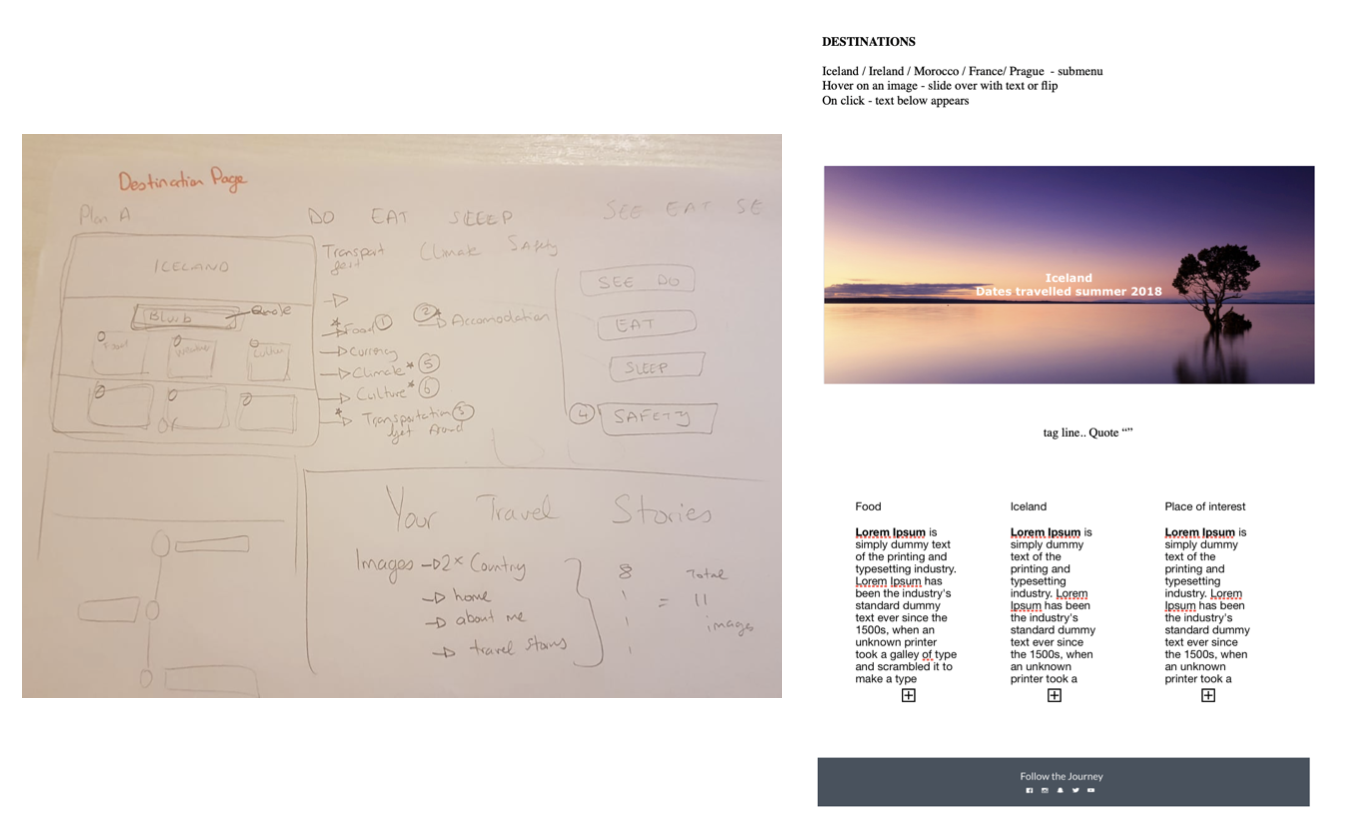 Destination Page
Plan A
DO EAT SLEEP
SEE EAT SE
Transport
Climate Safety
ICELAND
SEE DO
Blurb
Quote
Food ①
② Accomodation
EAT
Food
Weather
Culture
Currency
Climate * ⑤
SLEEP
Culture * ⑥
Transportation ③
get Around
④ SAFETY
or
Your Travel Stories
Images → 2x Country
8
Total
→ home
1
= 11
→ about me
1
images
→ travel stories
1
DESTINATIONS
Iceland / Ireland / Morocco / France/ Prague - submenu
Hover on an image - slide over with text or flip
On click - text below appears
Iceland
Dates travelled summer 2018
tag line.. Quote “”
Food
Lorem Ipsum is
simply dummy text
of the printing and
typesetting industry.
Lorem Ipsum has
been the industry's
standard dummy
text ever since the
1500s, when an
unknown printer
took a galley of type
and scrambled it to
make a type
Iceland
Lorem Ipsum is
simply dummy
text of the
printing and
typesetting
industry. Lorem
Ipsum has been
the industry's
standard dummy
text ever since
the 1500s, when
an unknown
printer took a
Place of interest
Lorem Ipsum is
simply dummy
text of the
printing and
typesetting
industry. Lorem
Ipsum has been
the industry's
standard dummy
text ever since
the 1500s, when
an unknown
printer took a
Follow the Journey